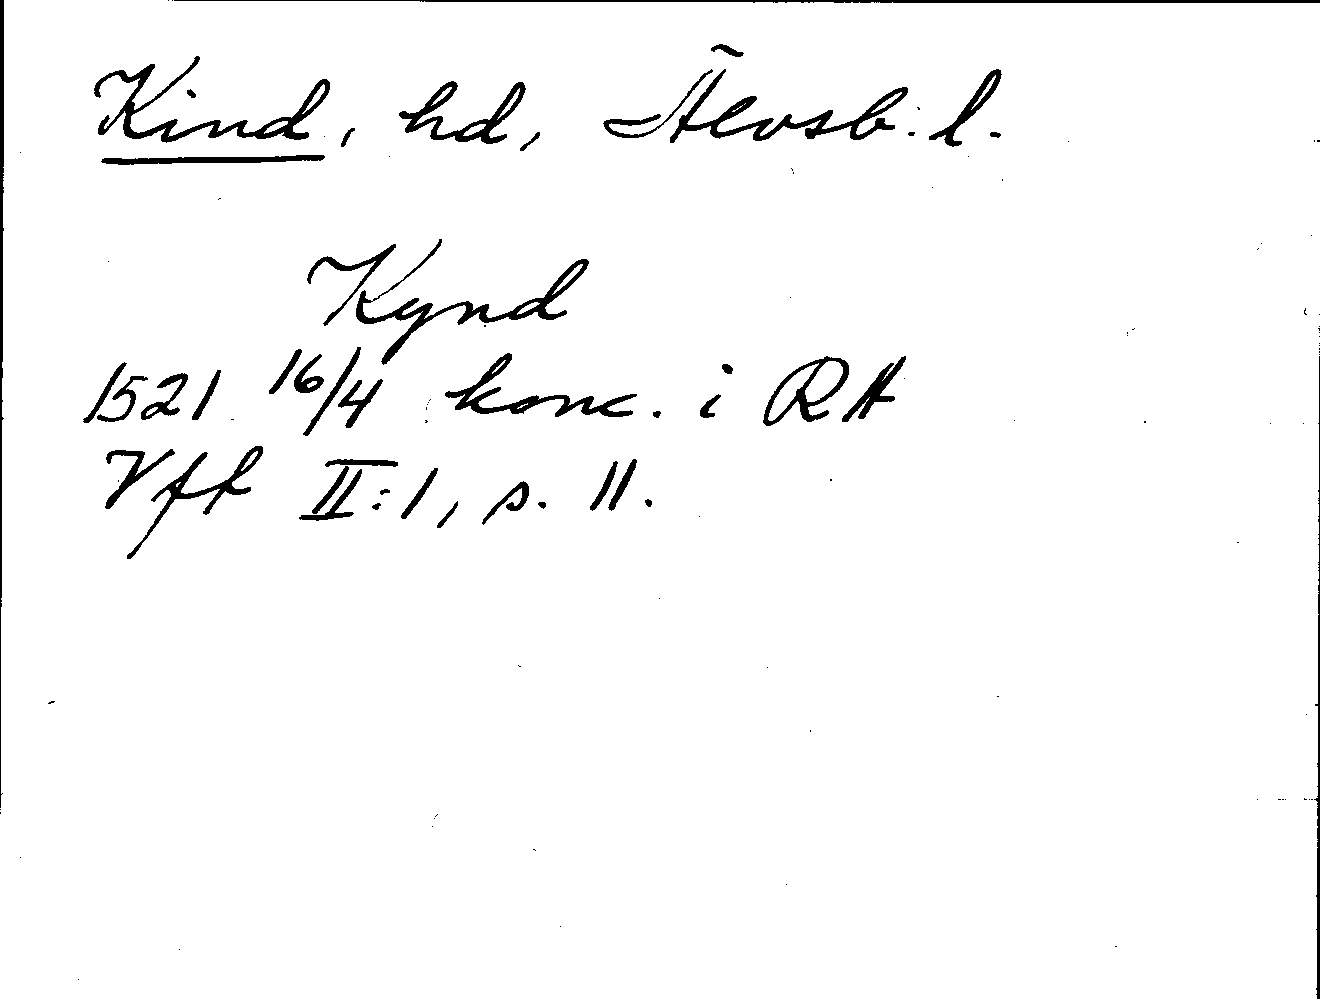 Kind, hd, Älvsb. l.
Kynd
1521 16/4 konc. i RA
Vff II:1, s. 11.